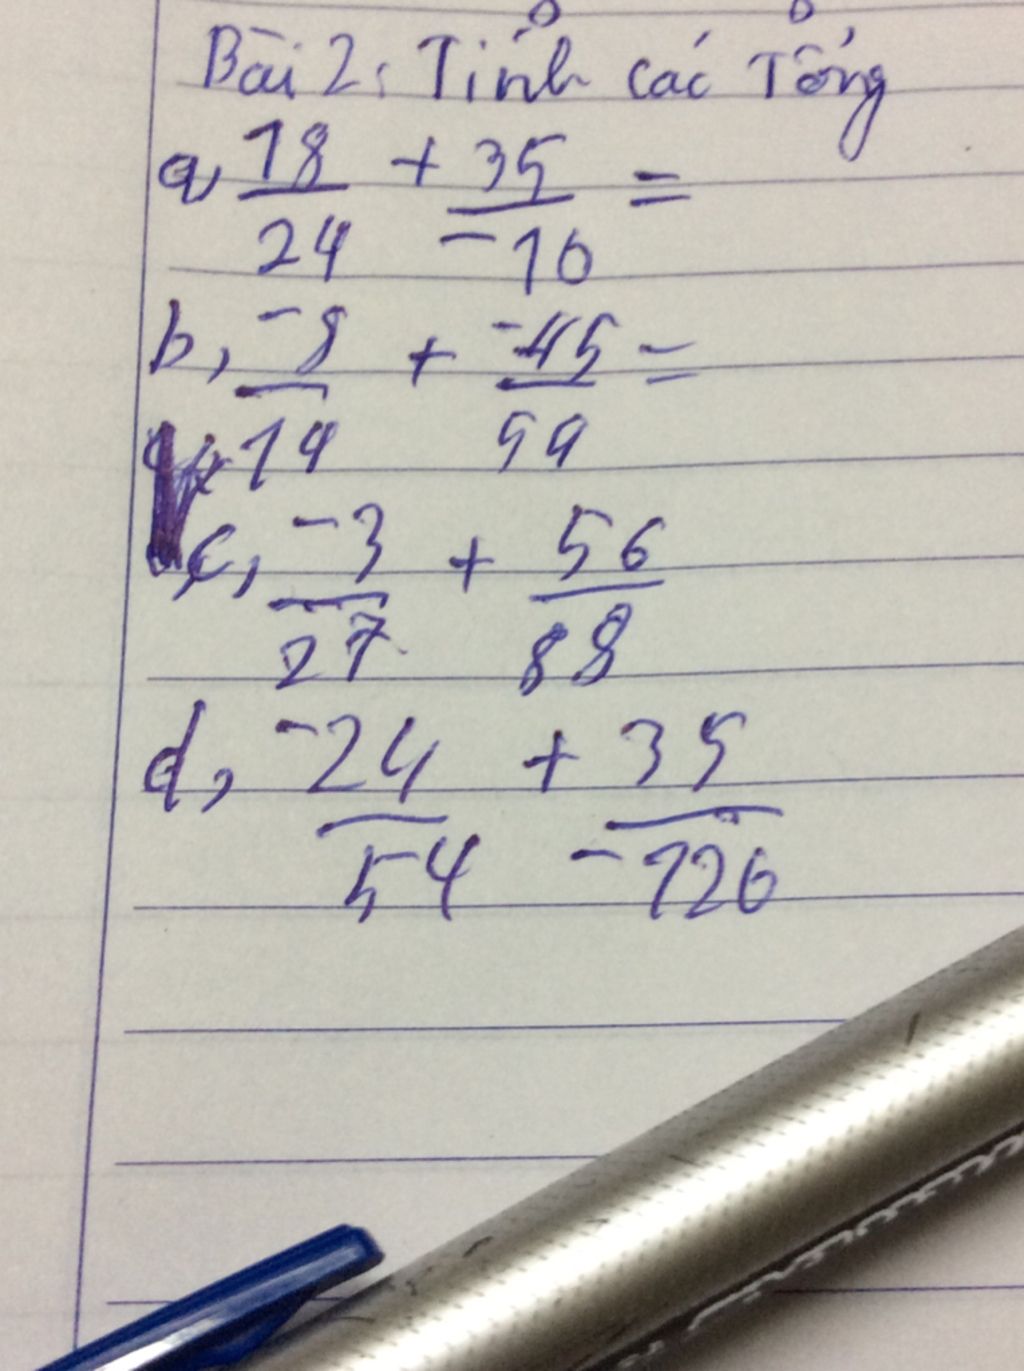 Bài 2: Tính các Tổng
a, 18/24 + 35/-10 =
b, -8/14 + -45/54 =
c, -3/27 + 56/88
d, -24/54 + 35/-126